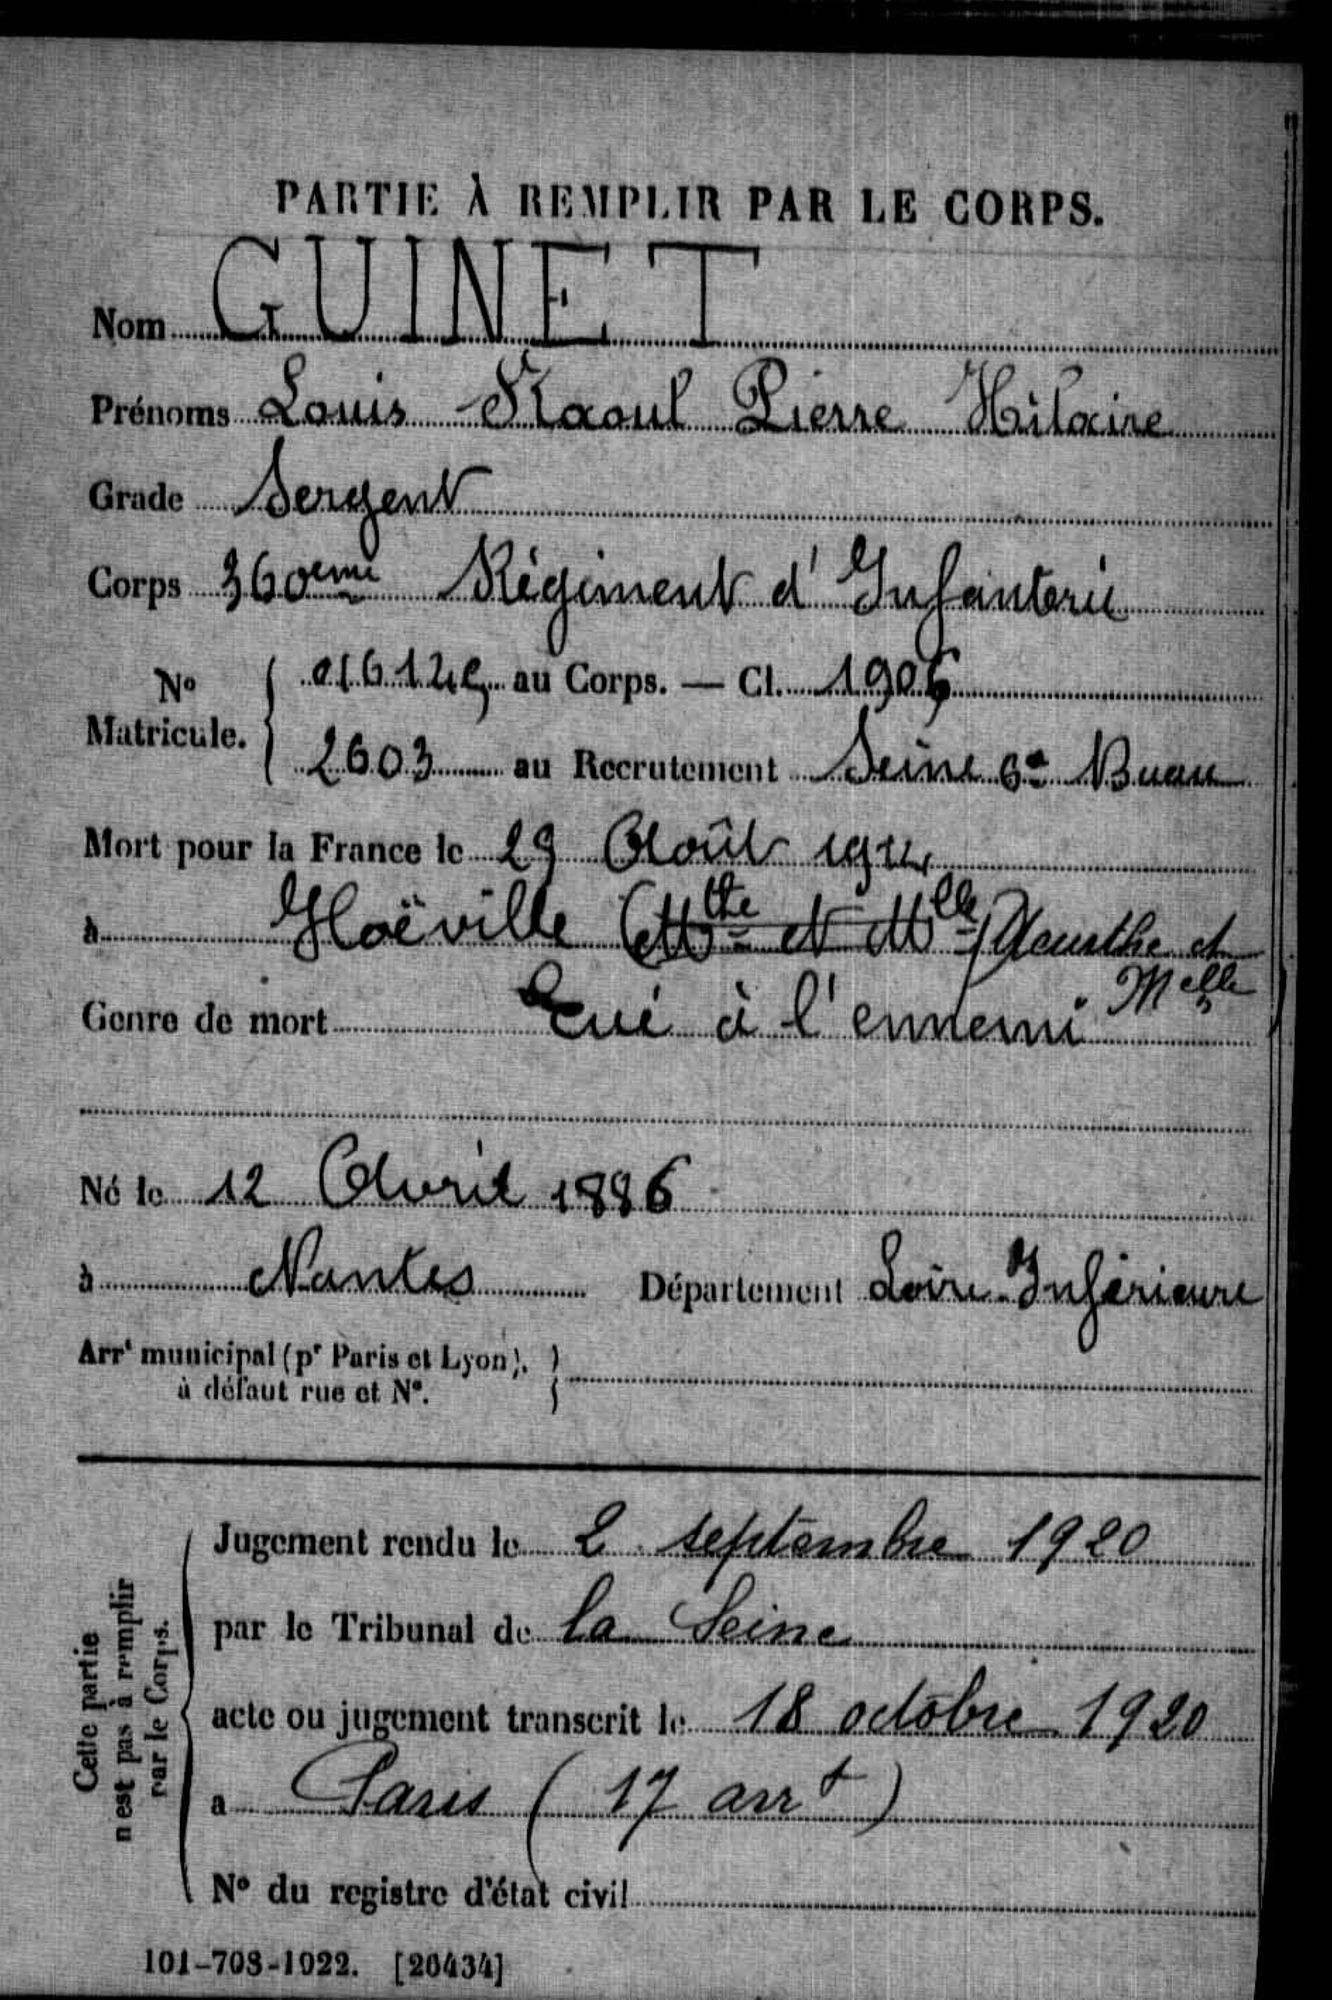 PARTIE À REMPLIR PAR LE CORPS.
Nom GUINET
Prénoms Louis Raoul Pierre Hilaire
Grade Sergent
Corps 360eme Régiment d'Infanterie
No Matricule. au Corps. — Cl. 1906
2603 au Recrutement Seine 6e Buau
Mort pour la France le 29 Août 1914
à Hoëville (Mthe et Mlle) Meurthe et Melle
Genre de mort Tué à l'ennemi
Né le 12 Avril 1886
à Nantes Département Loire-Inférieure
Arrt municipal (pr Paris et Lyon), à défaut rue et No.
Cette partie n'est pas à remplir par le Corps.
Jugement rendu le 2 septembre 1920
par le Tribunal de la Seine
acte ou jugement transcrit le 18 octobre 1920
a Paris (17 arrt)
No du registre d'état civil
101-708-1922. [26434]